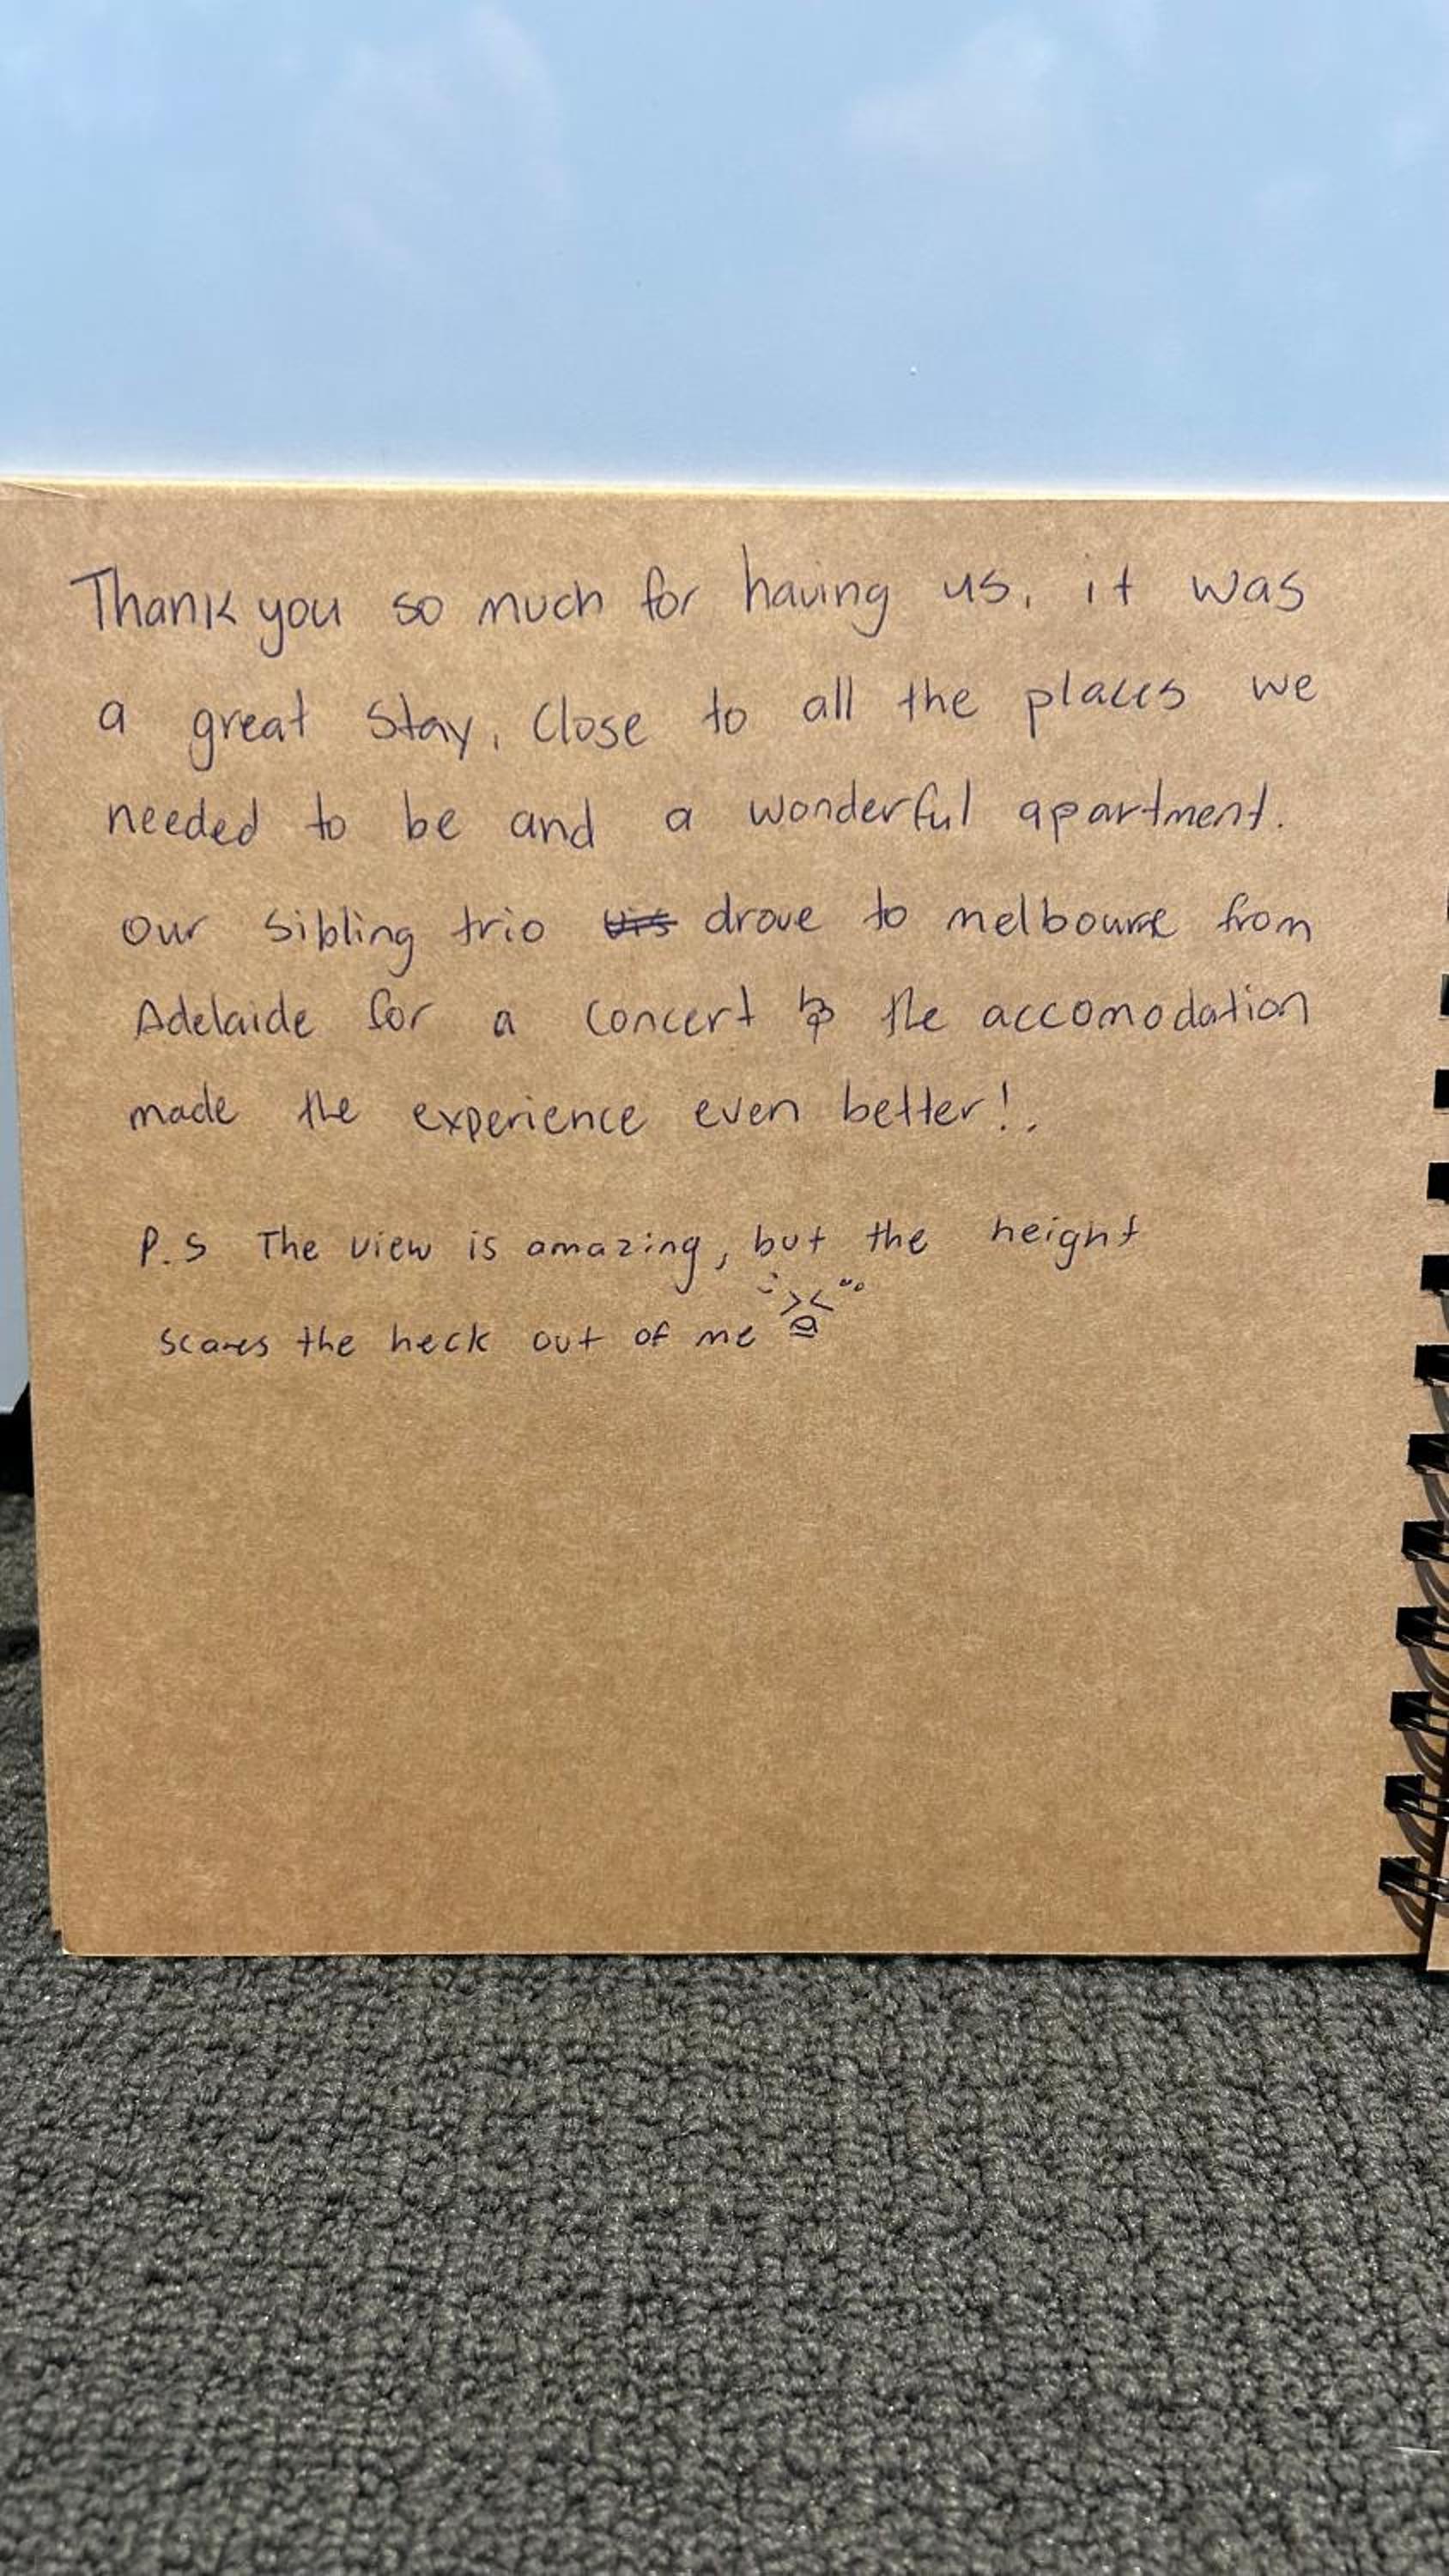 Thank you so much for having us, it was
a great stay, close to all the places we
needed to be and a wonderful apartment.
Our sibling trio drove to melbourne from
Adelaide for a concert & the accomodation
made the experience even better!.
P.S The view is amazing, but the height
scares the heck out of me